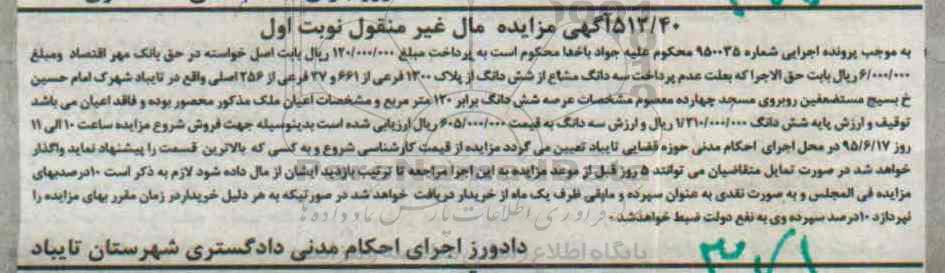 ۵۱۳/۴۰آگهی مزایده مال غیر منقول نوبت اول
به موجب پرونده اجرایی شماره ۹۵۰۰۳۵ محکوم علیه جواد باخدا محکوم است به پرداخت مبلغ ۱۲۰/۰۰۰/۰۰۰ ریال بابت اصل خواسته در حق بانک مهر اقتصاد ومبلغ
۶/۰۰۰/۰۰۰ ریال بابت حق الاجرا که بعلت عدم پرداخت سه دانگ مشاع از شش دانگ از پلاک ۱۳۰۰ فرعی از ۶۶۱ و ۲۷ فرعی از ۲۵۶ اصلی واقع در تایباد شهرک امام حسین
خ بسیج مستضعفین روبروی مسجد چهارده معصوم مشخصات عرصه شش دانگ برابر ۱۲۰ متر مربع و مشخصات اعیان ملک مذکور محصور بوده و فاقد اعیان می باشد
توقیف و ارزش پایه شش دانگ ۱/۲۱۰/۰۰۰/۰۰۰ ریال و ارزش سه دانگ به قیمت ۶۰۵/۰۰۰/۰۰۰ ریال ارزیابی شده است بدینوسیله جهت فروش شروع مزایده ساعت ۱۰ الی ۱۱
روز ۹۵/۶/۱۷ در محل اجرای احکام مدنی حوزه قضایی تایباد تعیین می گردد مزایده از قیمت کارشناسی شروع و به کسی که بالاترین قسمت را پیشنهاد نماید واگذار
خواهد شد در صورت تمایل متقاضیان می توانند ۵ روز قبل از موعد مزایده به این اجرا مراجعه تا ترتیب بازدید ایشان از مال داده شود لازم به ذکر است ۱۰درصدبهای
مزایده فی المجلس و به صورت نقدی به عنوان سپرده و مابقی ظرف یک ماه از خریدار دریافت خواهد شد در صورتیکه به هر دلیل خریداردر زمان مقرر بهای مزایده را
نپردازد ۱۰درصد سپرده وی به نفع دولت ضبط خواهدشد.
دادورز اجرای احکام مدنی دادگستری شهرستان تایباد